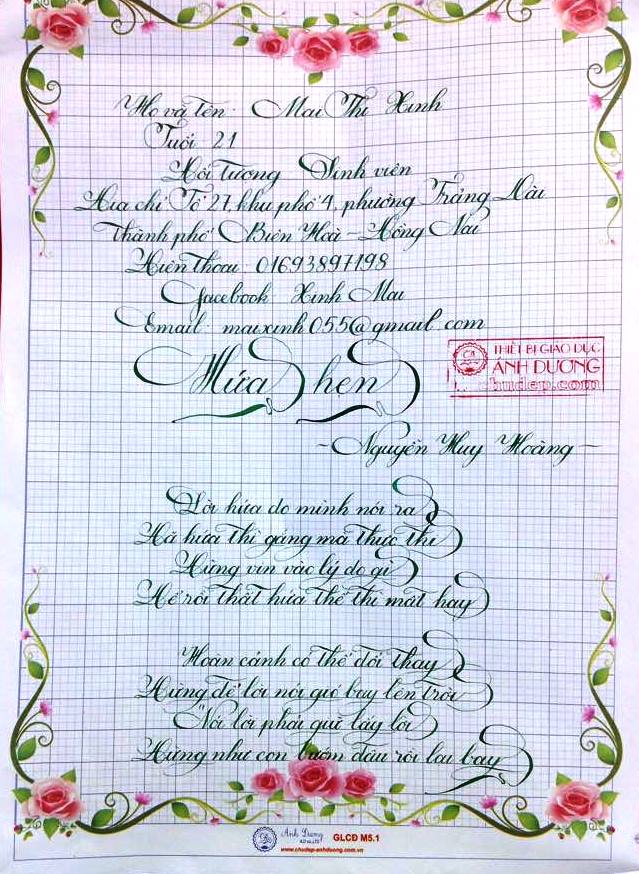 Họ và tên: Mai Thị Xinh
Tuổi 21
Đối tượng Sinh viên
Địa chỉ Tổ 27, khu phố 4, phường Trảng Dài
thành phố Biên Hoà - Đồng Nai
Điện thoại: 01693897198
facebook Xinh Mai
Email: maixinh055@gmail.com
Hứa hẹn
THIẾT BỊ GIÁO DỤC
ÁNH DƯƠNG
chudep.com
- Nguyễn Huy Hoàng -
Lời hứa do mình nói ra
Đã hứa thì gắng mà thực thi
Đừng vin vào lý do gì
Để rồi thất hứa thế thì mất hay
Hoàn cảnh có thể đổi thay
Đừng để lời nói gió bay lên trời
Nói lời phải giữ lấy lời
Đừng như con bướm đậu rồi lại bay
Ánh Dương
GLCĐ M5.1
www.chudep-anhduong.com.vn